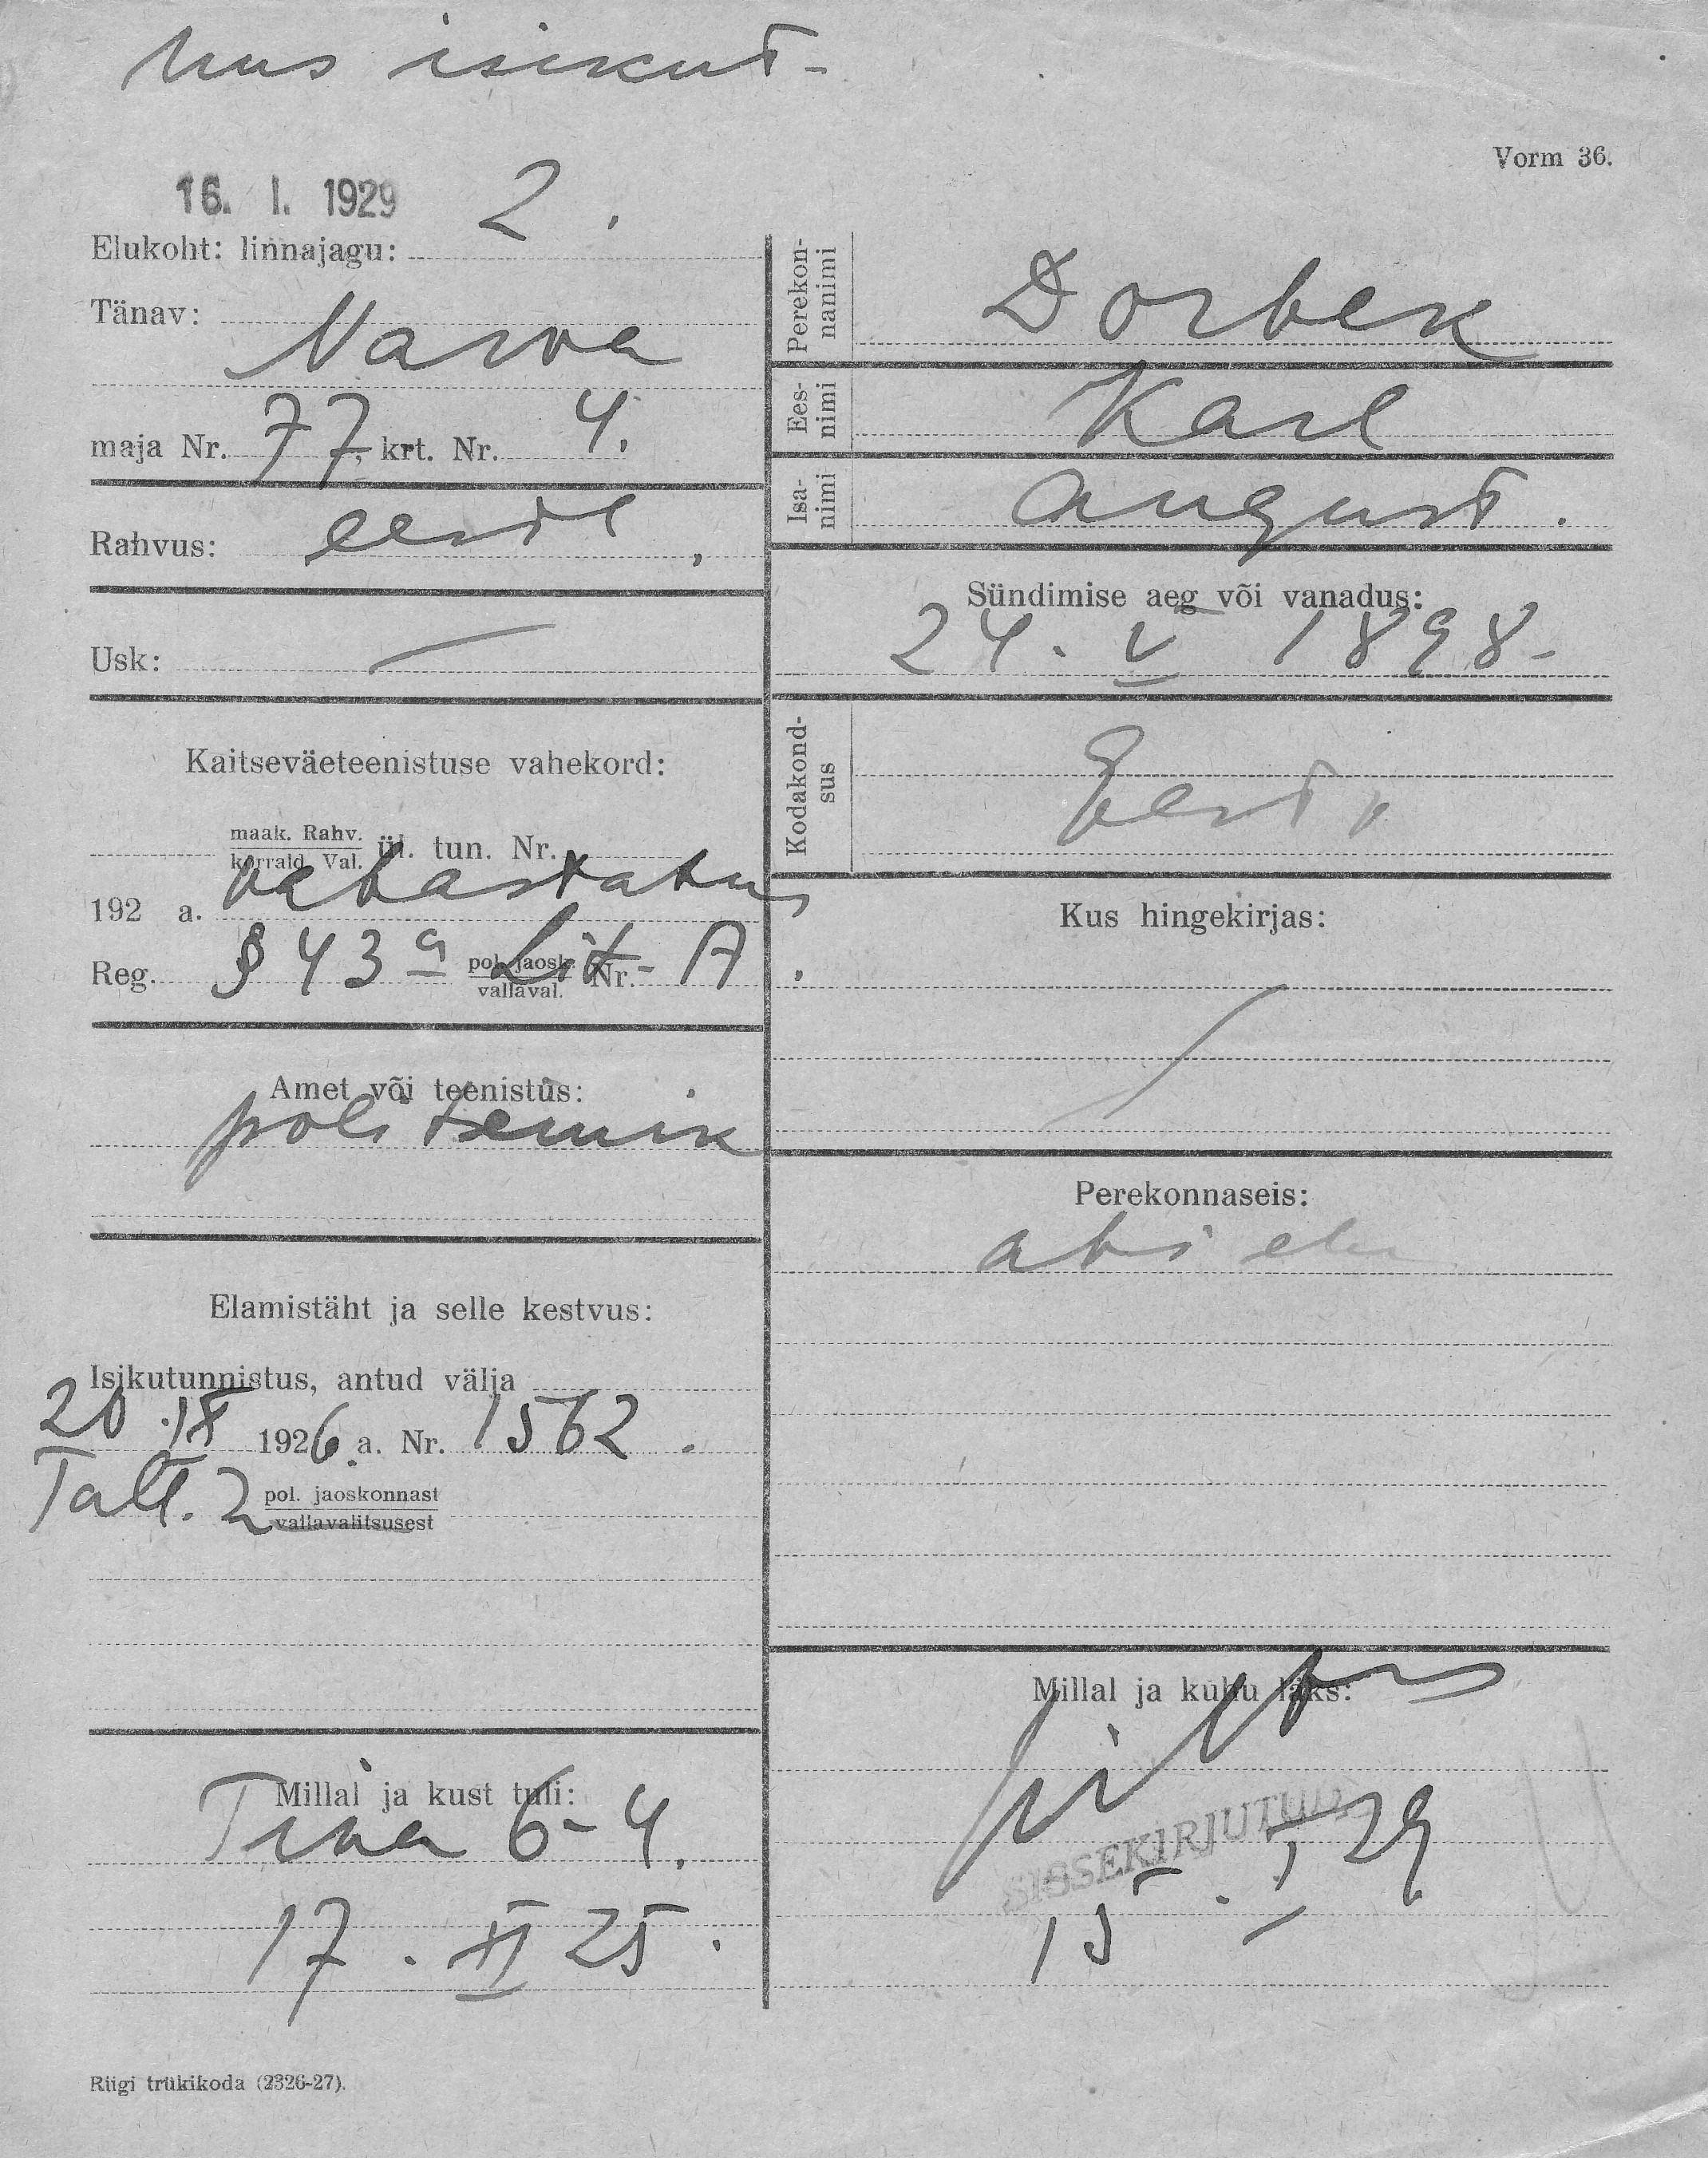 uus isikut-
Vorm 36.
16. I. 1929
2.
Elukoht: linnajagu:
Tänav:
Narva
maja Nr. 77, krt. Nr. 4.
Rahvus: eesti,
Usk: —
Kaitseväeteenistuse vahekord:
maak. Rahv.
korrald. Val. ül. tun. Nr.
192 a. vabastatus
Reg. § 43 a pol. jaosk. Lit. Nr. - A.
vallaval.
Amet või teenistus:
politseinik
Elamistäht ja selle kestvus:
Isikutunnistus, antud välja
20. IX 1926 a. Nr. 1562.
Tall. 2 pol. jaoskonnast
vallavalitsusest
Millal ja kust tuli:
Tina 6-4.
17. XI 25.
Riigi trükikoda (2326-27).
Perekon-
nanimi
Dorbek
Ees-
nimi
Karl
Isa-
nimi
August.
Sündimise aeg või vanadus:
24. V 1898-
Kodakond-
sus
Eesti
Kus hingekirjas:
Perekonnaseis:
abielu
Millal ja kuhu läks:
SISSEKIRJUTUD
15. I 29